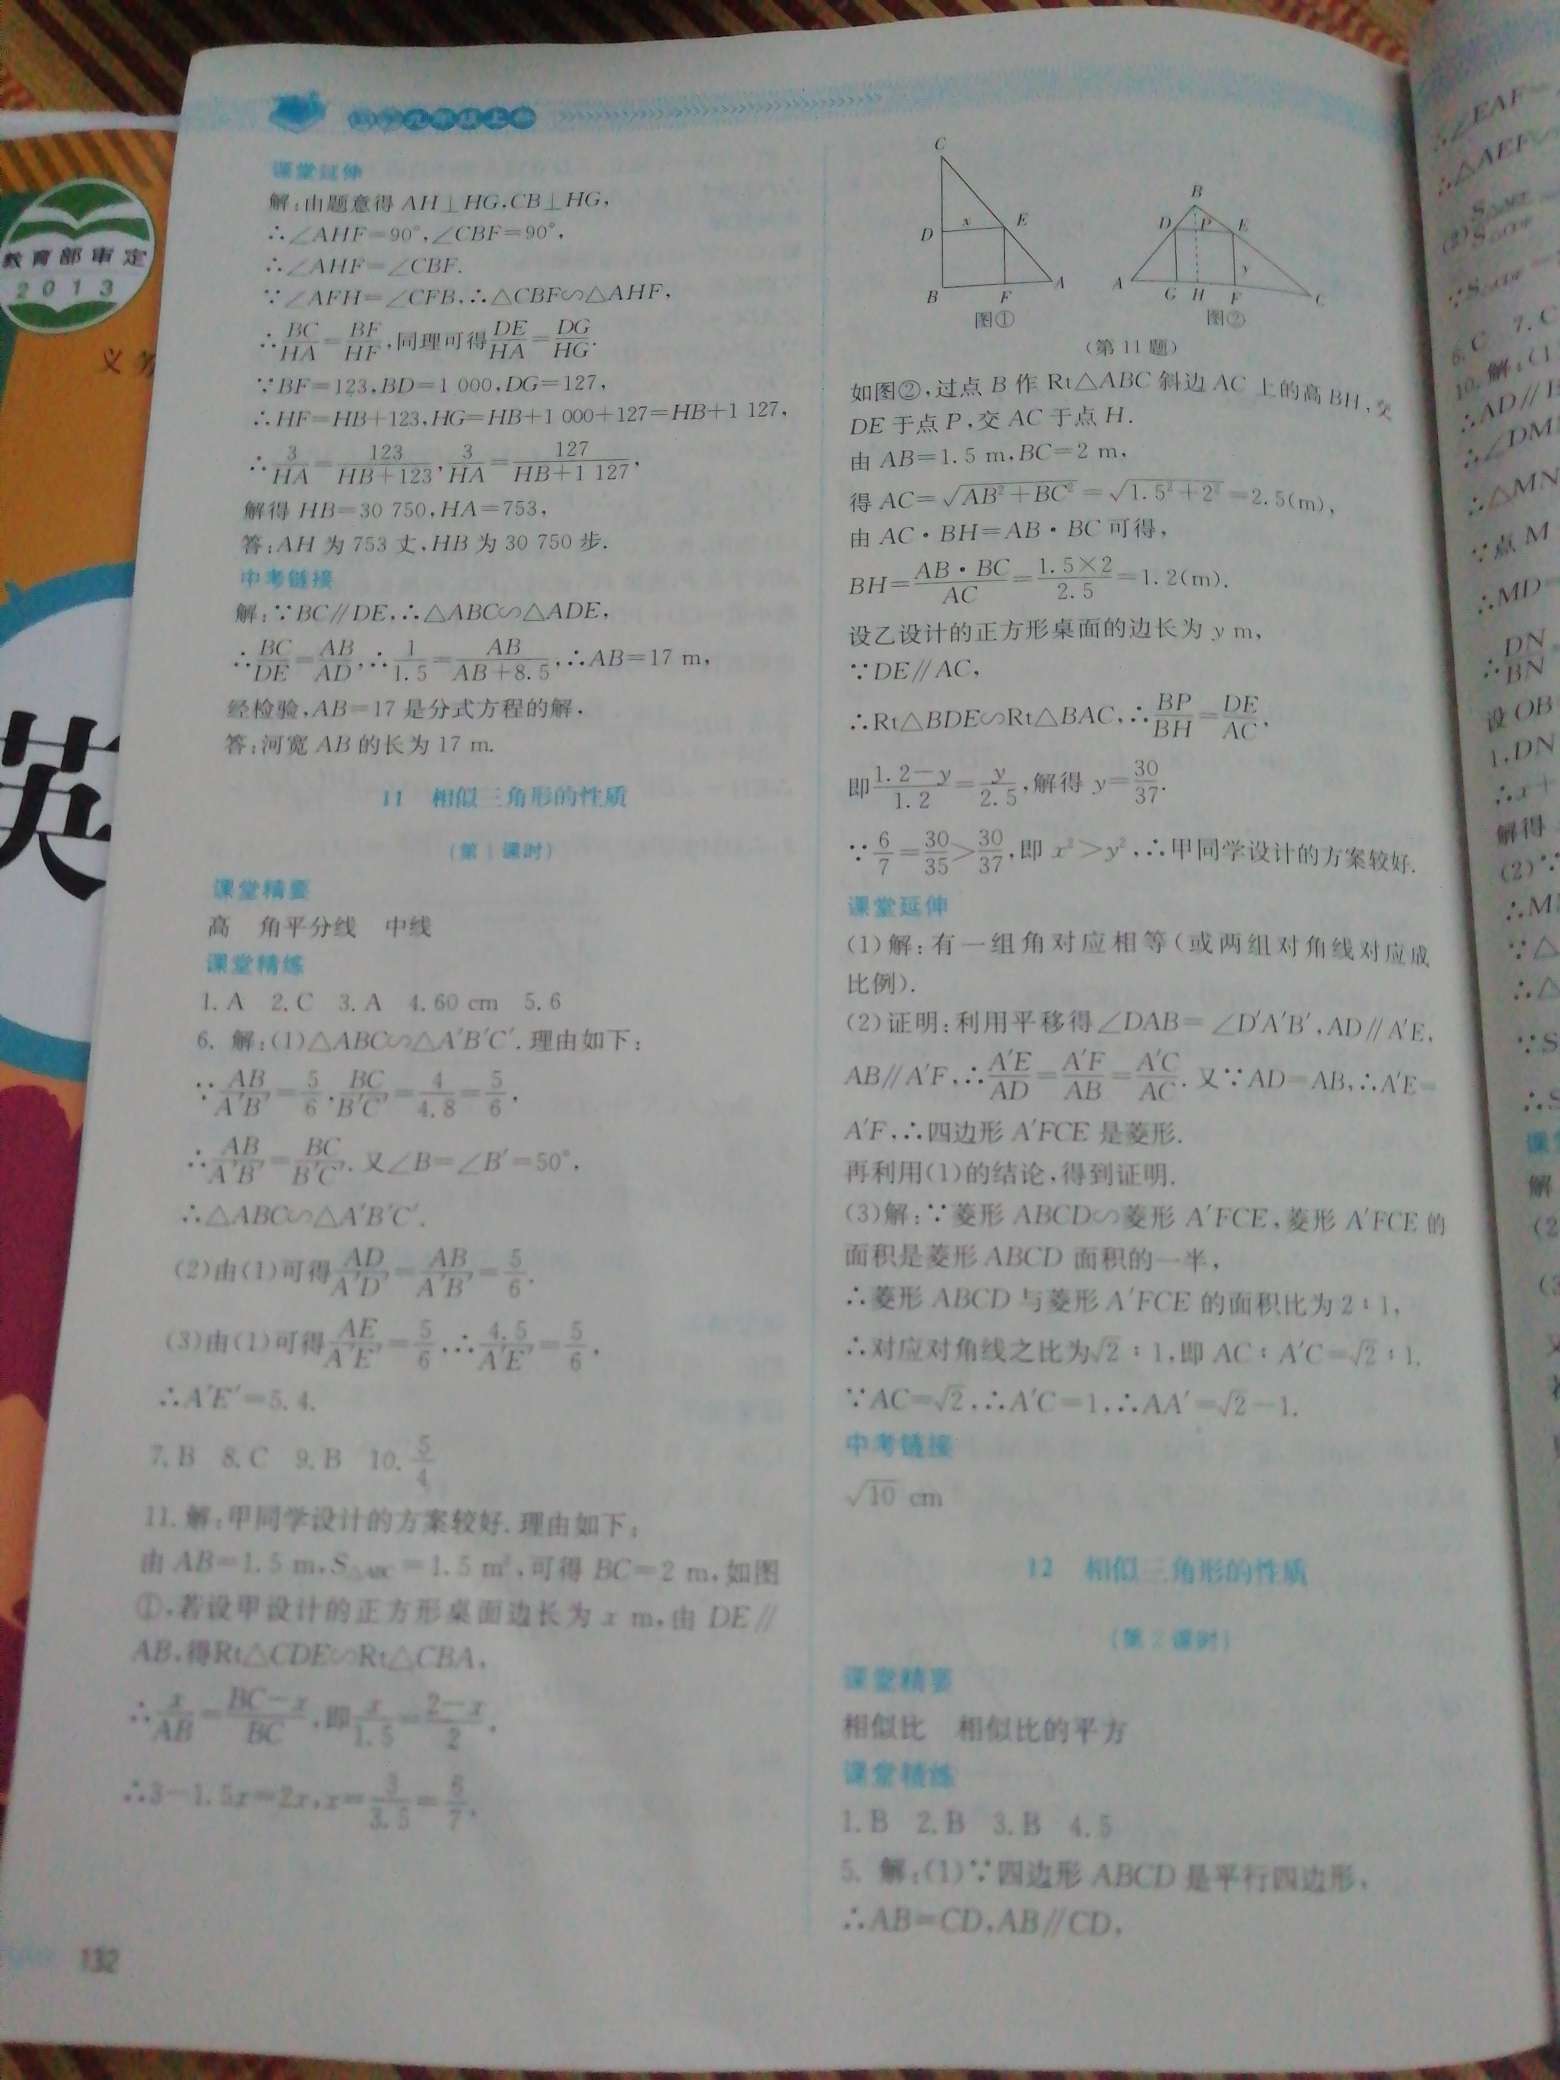 教育部审定
2013
义务
英
九年级上册
课堂延伸
解:由题意得 AH⊥HG,CB⊥HG,
∴∠AHF=90°,∠CBF=90°,
∴∠AHF=∠CBF.
∵∠AFH=∠CFB,∴△CBF∽△AHF,
∴BC/HA=BF/HF,同理可得DE/HA=DG/HG.
∵BF=123,BD=1 000,DG=127,
∴HF=HB+123,HG=HB+1 000+127=HB+1 127,
∴3/HA=123/(HB+123),3/HA=127/(HB+1 127),
解得 HB=30 750,HA=753,
答:AH 为 753 丈,HB 为 30 750 步.
中考链接
解:∵BC∥DE,∴△ABC∽△ADE,
∴BC/DE=AB/AD,∴1/1.5=AB/(AB+8.5),∴AB=17 m,
经检验,AB=17 是分式方程的解,
答:河宽 AB 的长为 17 m.
11 相似三角形的性质
(第1课时)
课堂精要
高 角平分线 中线
课堂精练
1. A 2. C 3. A 4. 60 cm 5. 6
6. 解:(1)△ABC∽△A′B′C′.理由如下:
∵AB/A′B′=5/6,BC/B′C′=4/4.8=5/6,
∴AB/A′B′=BC/B′C′.又∠B=∠B′=50°,
∴△ABC∽△A′B′C′.
(2)由(1)可得AD/A′D′=AB/A′B′=5/6.
(3)由(1)可得AE/A′E′=5/6,∴4.5/A′E′=5/6,
∴A′E′=5.4.
7. B 8. C 9. B 10. 5/4
11. 解:甲同学设计的方案较好.理由如下:
由 AB=1.5 m,S△ABC=1.5 m²,可得 BC=2 m,如图
①,若设甲设计的正方形桌面边长为 x m,由 DE∥
AB,得Rt△CDE∽Rt△CBA,
∴x/AB=(BC−x)/BC,即x/1.5=(2−x)/2,
∴3−1.5x=2x,x=3/3.5=6/7.
132
C
D x E
B F A
图①
B
D P E
y
A G H F C
图②
(第 11 题)
如图②,过点 B 作 Rt△ABC 斜边 AC 上的高 BH,交
DE 于点 P,交 AC 于点 H.
由 AB=1.5 m,BC=2 m,
得 AC=√(AB²+BC²)=√(1.5²+2²)=2.5(m),
由 AC·BH=AB·BC 可得,
BH=AB·BC/AC=1.5×2/2.5=1.2(m).
设乙设计的正方形桌面的边长为 y m,
∵DE∥AC,
∴Rt△BDE∽Rt△BAC,∴BP/BH=DE/AC,
即(1.2−y)/1.2=y/2.5,解得 y=30/37.
∵6/7=30/35>30/37,即 x²>y²,∴甲同学设计的方案较好.
课堂延伸
(1)解:有一组角对应相等(或两组对角线对应成
比例).
(2)证明:利用平移得∠DAB=∠D′A′B′,AD∥A′E,
AB∥A′F,∴A′E/AD=A′F/AB=A′C/AC.又∵AD=AB,∴A′E=
A′F,∴四边形 A′FCE 是菱形.
再利用(1)的结论,得到证明.
(3)解:∵菱形 ABCD∽菱形 A′FCE,菱形 A′FCE 的
面积是菱形 ABCD 面积的一半,
∴菱形 ABCD 与菱形 A′FCE 的面积比为 2∶1,
∴对应对角线之比为√2∶1,即 AC∶A′C=√2∶1.
∵AC=√2,∴A′C=1,∴AA′=√2−1.
中考链接
√10 cm
12 相似三角形的性质
(第2课时)
课堂精要
相似比 相似比的平方
课堂精练
1. B 2. B 3. B 4. 5
5. 解:(1)∵四边形 ABCD 是平行四边形,
∴AB=CD,AB∥CD,
∴∠EAF=
∴△AEF∽
6. C 7. C
10. 解:(1
∴AD∥B
∴∠DM
∴△MN
∵点 M
∴MD=
∴DN/BN
设 OB
1,DN
∴x+
解得
(2)∵
∴M
∵△
∴△
∵S
∴S
课
解
(2